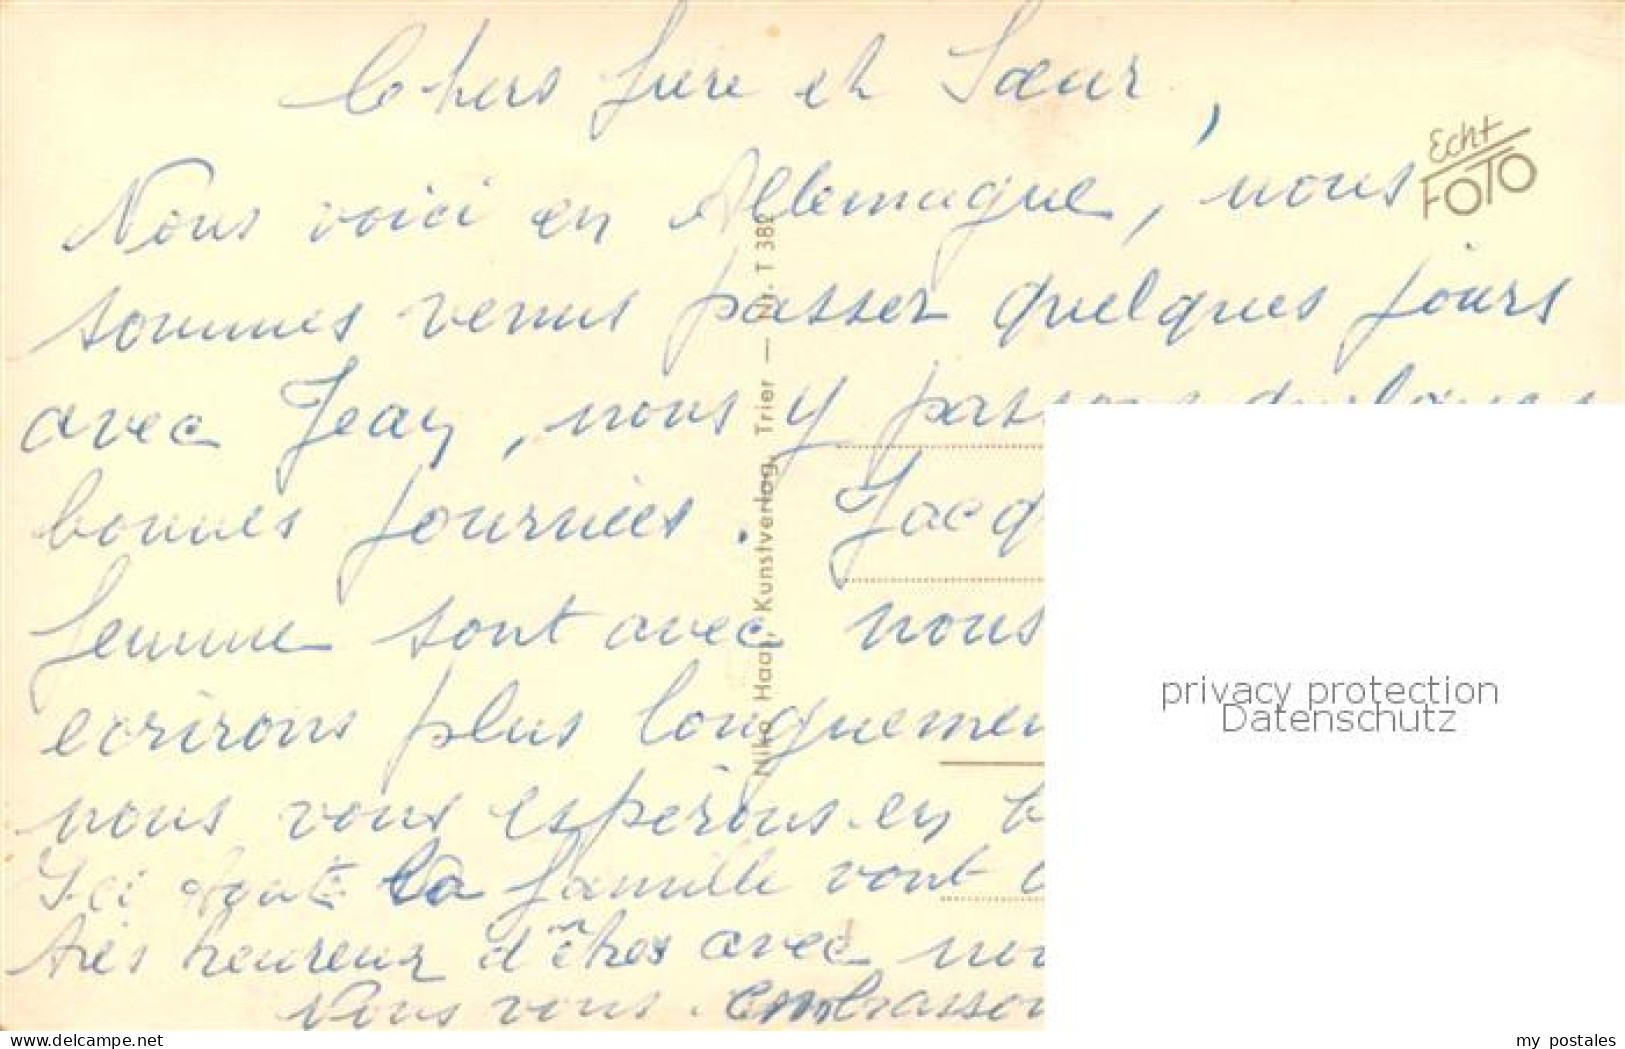 Chers frère et Sœur,
Echt
FOTO
Nous voici en Allemagne, nous
sommes venus passer quelques jours
avec Jean, nous y passons quelques
bonnes journées. Jacq
femme sont avec nous
ecrirons plus longuemen
nous vous espérons en b
Ici toute la famille vont
très heureux d'êtres avec nou
Nous vous embrasson
Niko Haas, Kunstverlag, Trier — Nr. T 382
privacy protection
Datenschutz
www.delcampe.net
my_postales